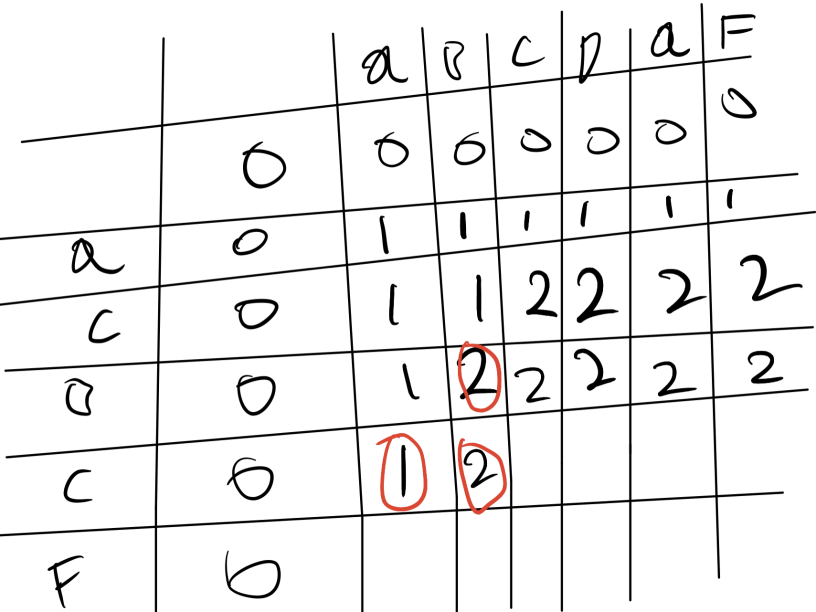 a B C D a F
0 0 0 0 0 0 0
a 0 1 1 1 1 1 1
C 0 1 1 2 2 2 2
B 0 1 2 2 2 2 2
C 0 1 2
F 0